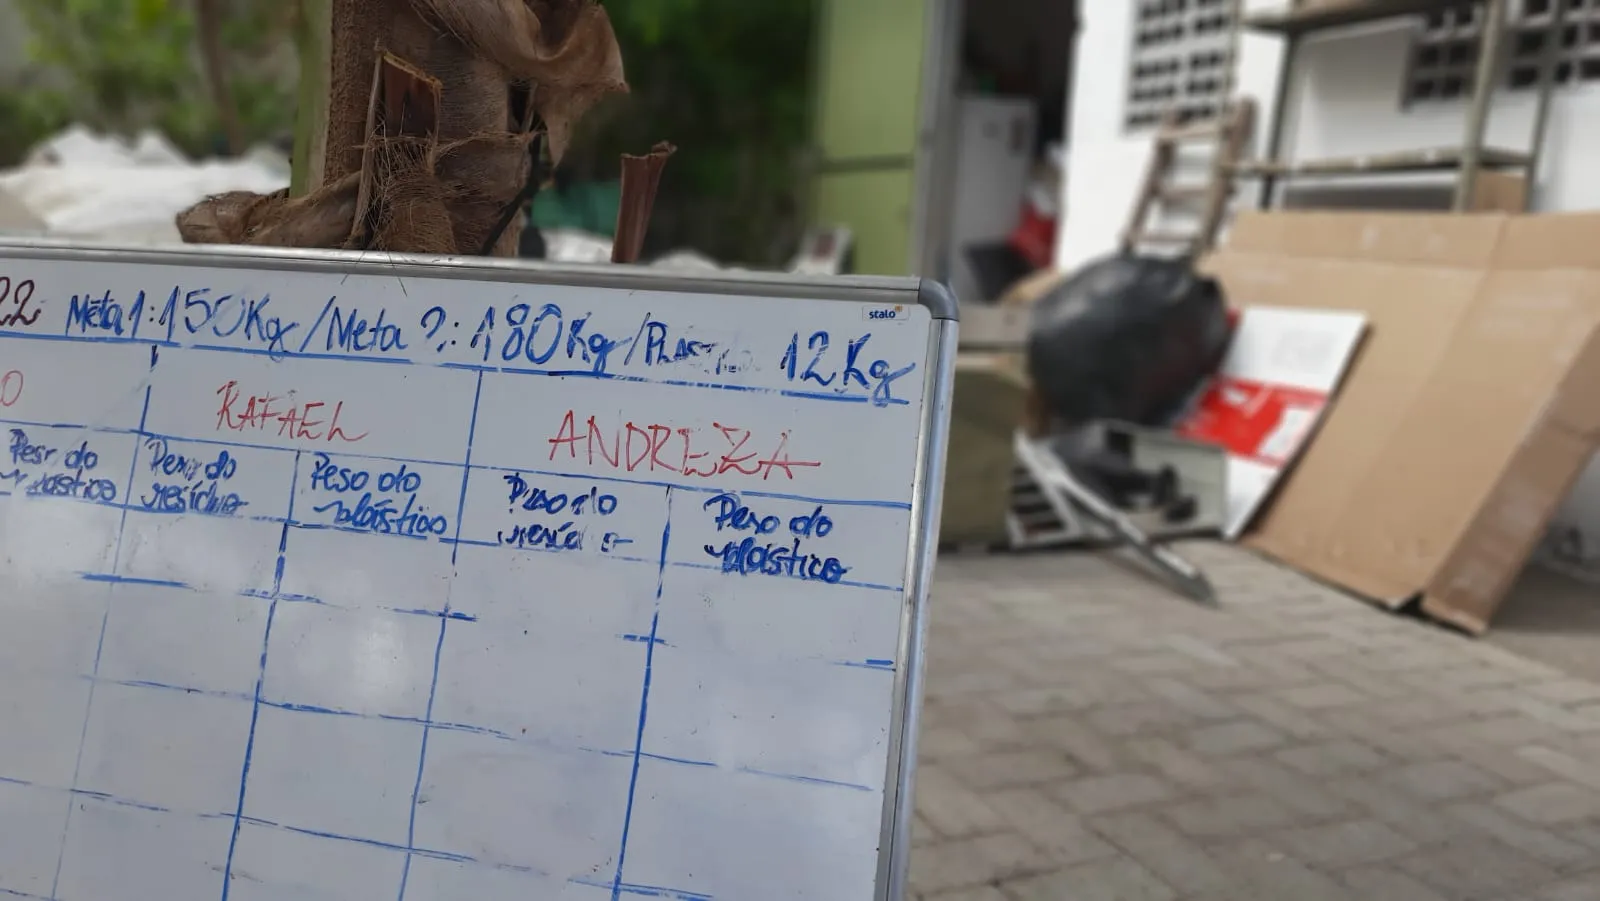 22 Meta 1: 150Kg / Meta 2: 180Kg / 12Kg
stalo
O RAFAEL ANDREZA
Peso do Peso do Peso do Peso do Peso do
plástico resíduo plástico resíduo plástico